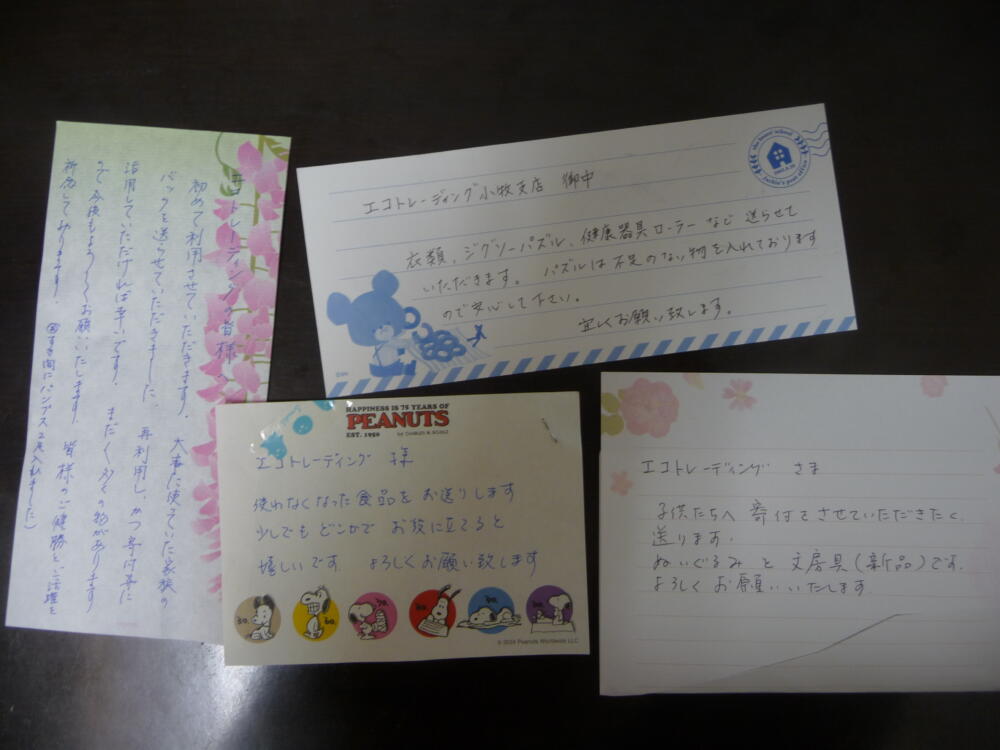 エコトレーディングの皆様へ
初めて利用させていただきます。大事に使っていた家族の
バッグを送らせていただきました 再利用し、かつ寄付等に
活用していただければ幸いです。まだまだ多くの物があります
ので今後もよろしくお願いいたします。皆様のご健勝とご活躍を
祈念してみります。
すき間にパンプス2足入れました)
エコトレーディング小牧支店 御中
衣類、ジグソーパズル、健康器具ローラーなど送らせて
いただきます。パズルは不足のない物を入れております
ので安心して下さい。
宜しくお願い致します。
the bears' school
Jackie's post office
HAPPINESS IS 75 YEARS OF
PEANUTS
EST. 1950 by CHARLES M. SCHULZ
エコトレーディング 様
使わなくなった食品をお送りします
少しでもどこかでお役に立てると
嬉しいです よろしくお願い致します
© 2024 Peanuts Worldwide LLC
エコトレーディング さま
子供たちへ寄付をさせていただきたく
送ります。
ぬいぐるみと文房具(新品)です。
よろしくお願いいたします